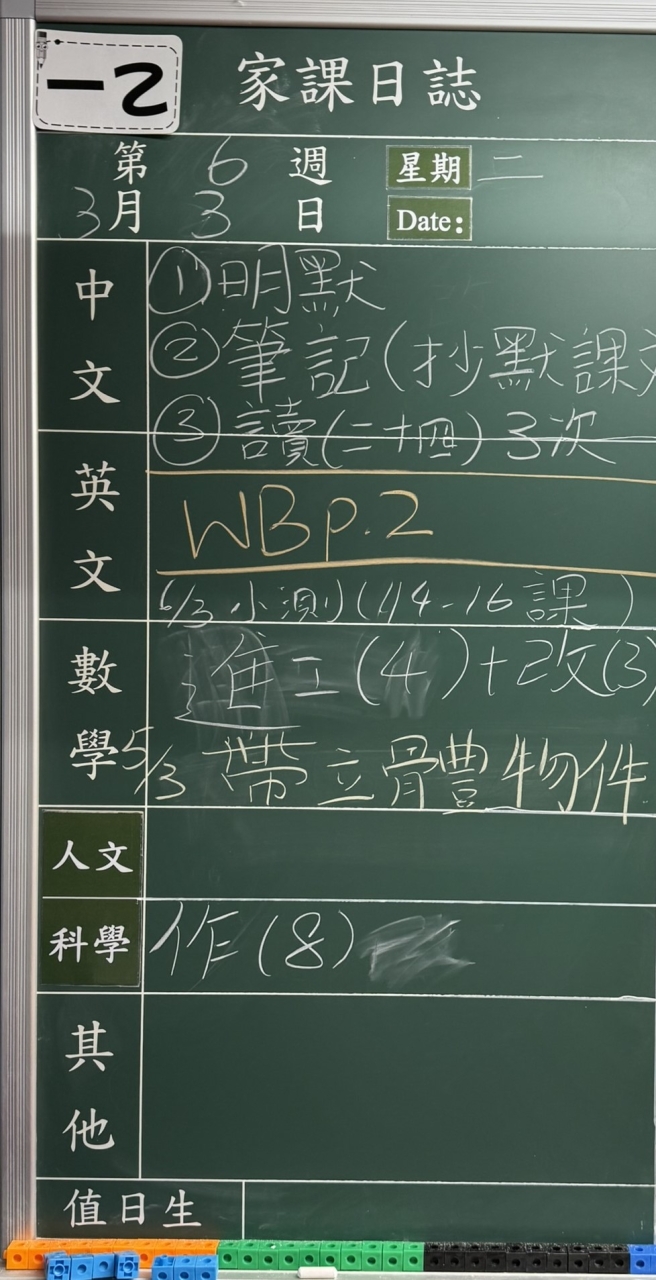 一乙
家課日誌
第 6 週 星期 二
3月 3 日 Date:
中文
①明默
②筆記(抄默課文
③讀(二十四)3次
英文
WB p.2
6/3 小測(14-16課)
數學
進工(4)+改(3)
5/3 帶立體物件
人文
科學
作(8)
其他
值日生